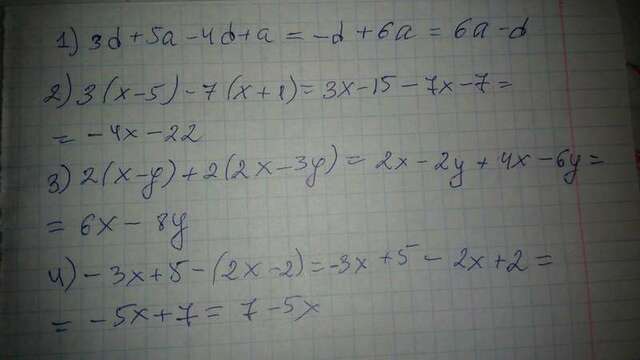 1) 3d+5a-4d+a = -d+6a = 6a-d
2) 3(x-5)-7(x+1)= 3x-15-7x-7=
= -4x-22
3) 2(x-y)+2(2x-3y)= 2x-2y+4x-6y=
= 6x-8y
4) -3x+5-(2x-2)=-3x+5-2x+2=
= -5x+7= 7-5x